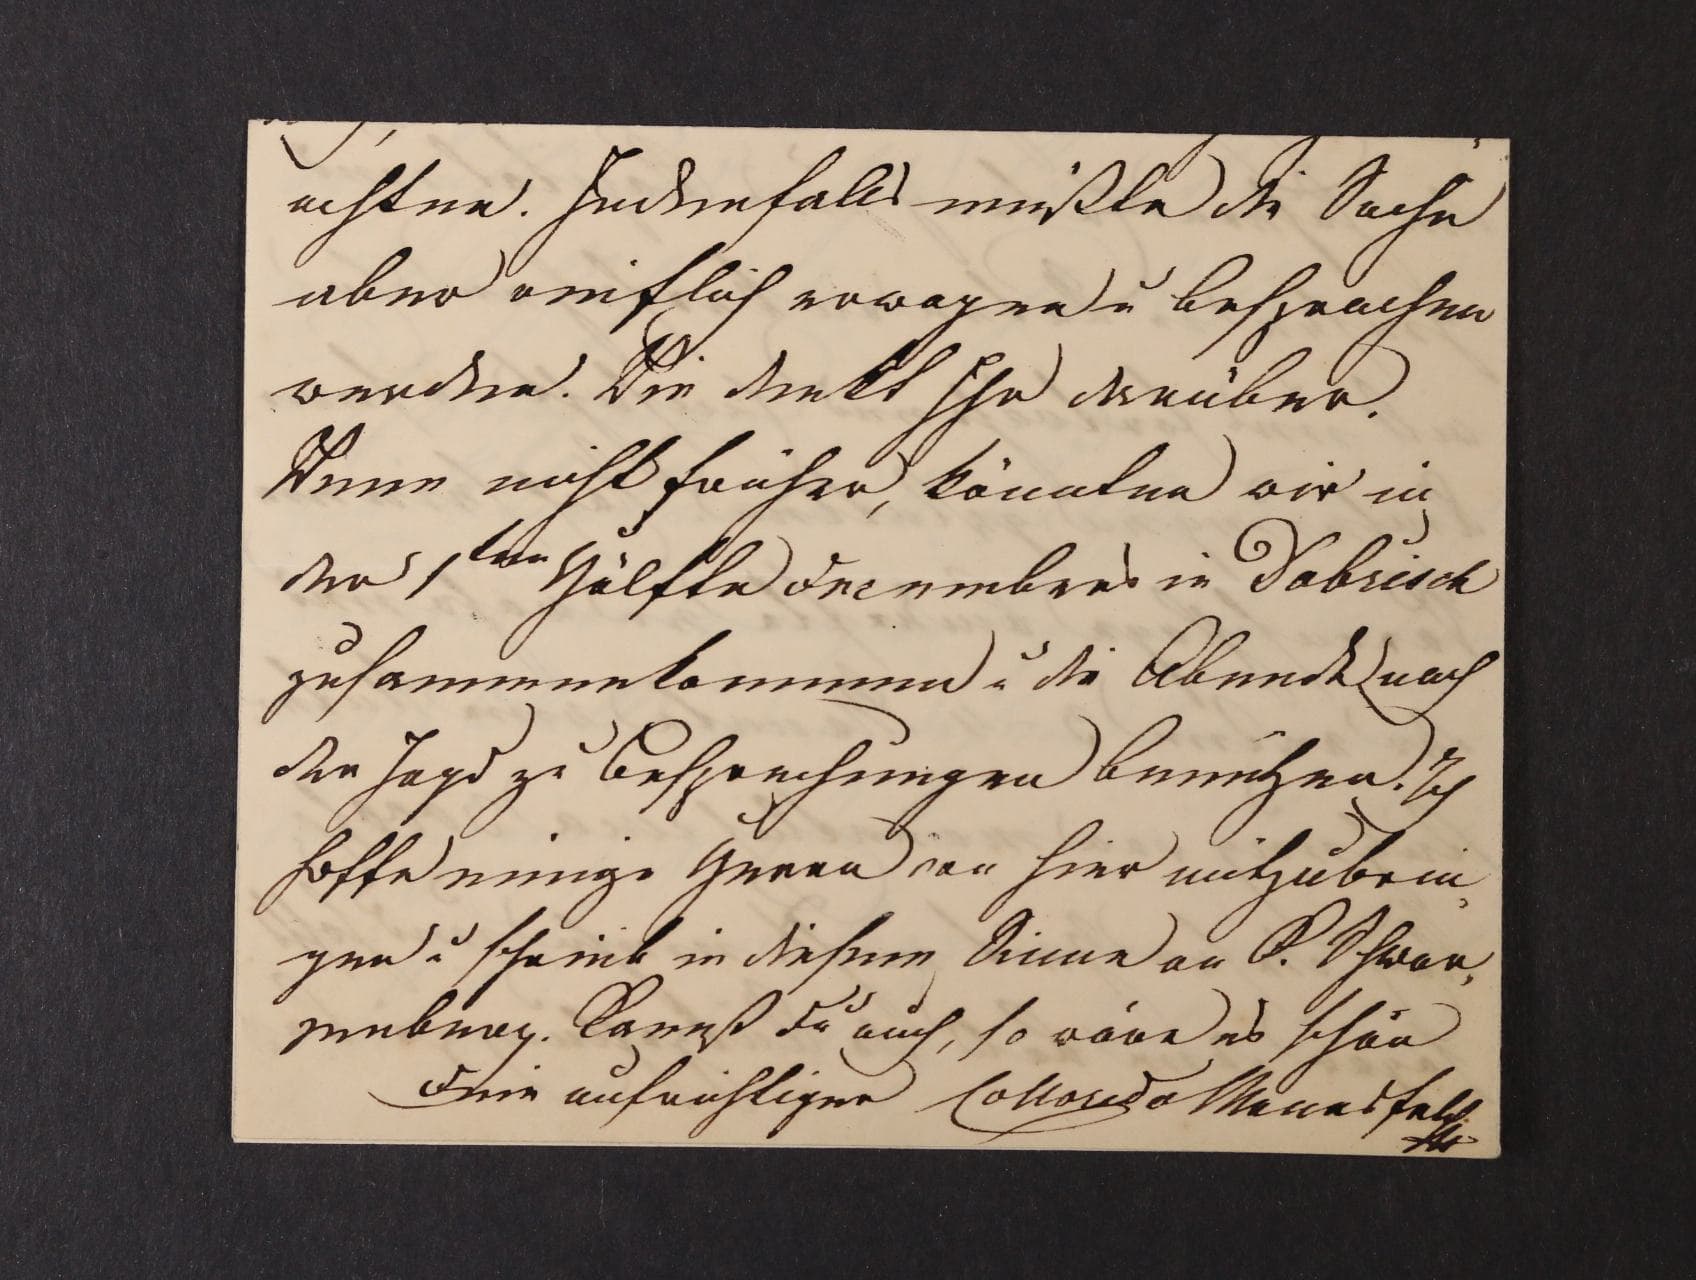 achten. Jedenfalls müßte die Sache
aber reiflich erwogen u besprochen
werden. Wie denkt Ihr darüber.
Wenn nicht früher, könnten wir in
der 1ten Hälfte Decembers in Dobrisch
zusammenkommen u die Abende nach
der Jagd zu Besprechungen benützen. Ich
hoffe einige Herren von hier mitzubrin-
gen u schrieb in diesem Sinne an F. Schwar-
zenberg. Kannst Du auch, so wäre es schön
Dein aufrichtiger Colloredo Mannsfeld